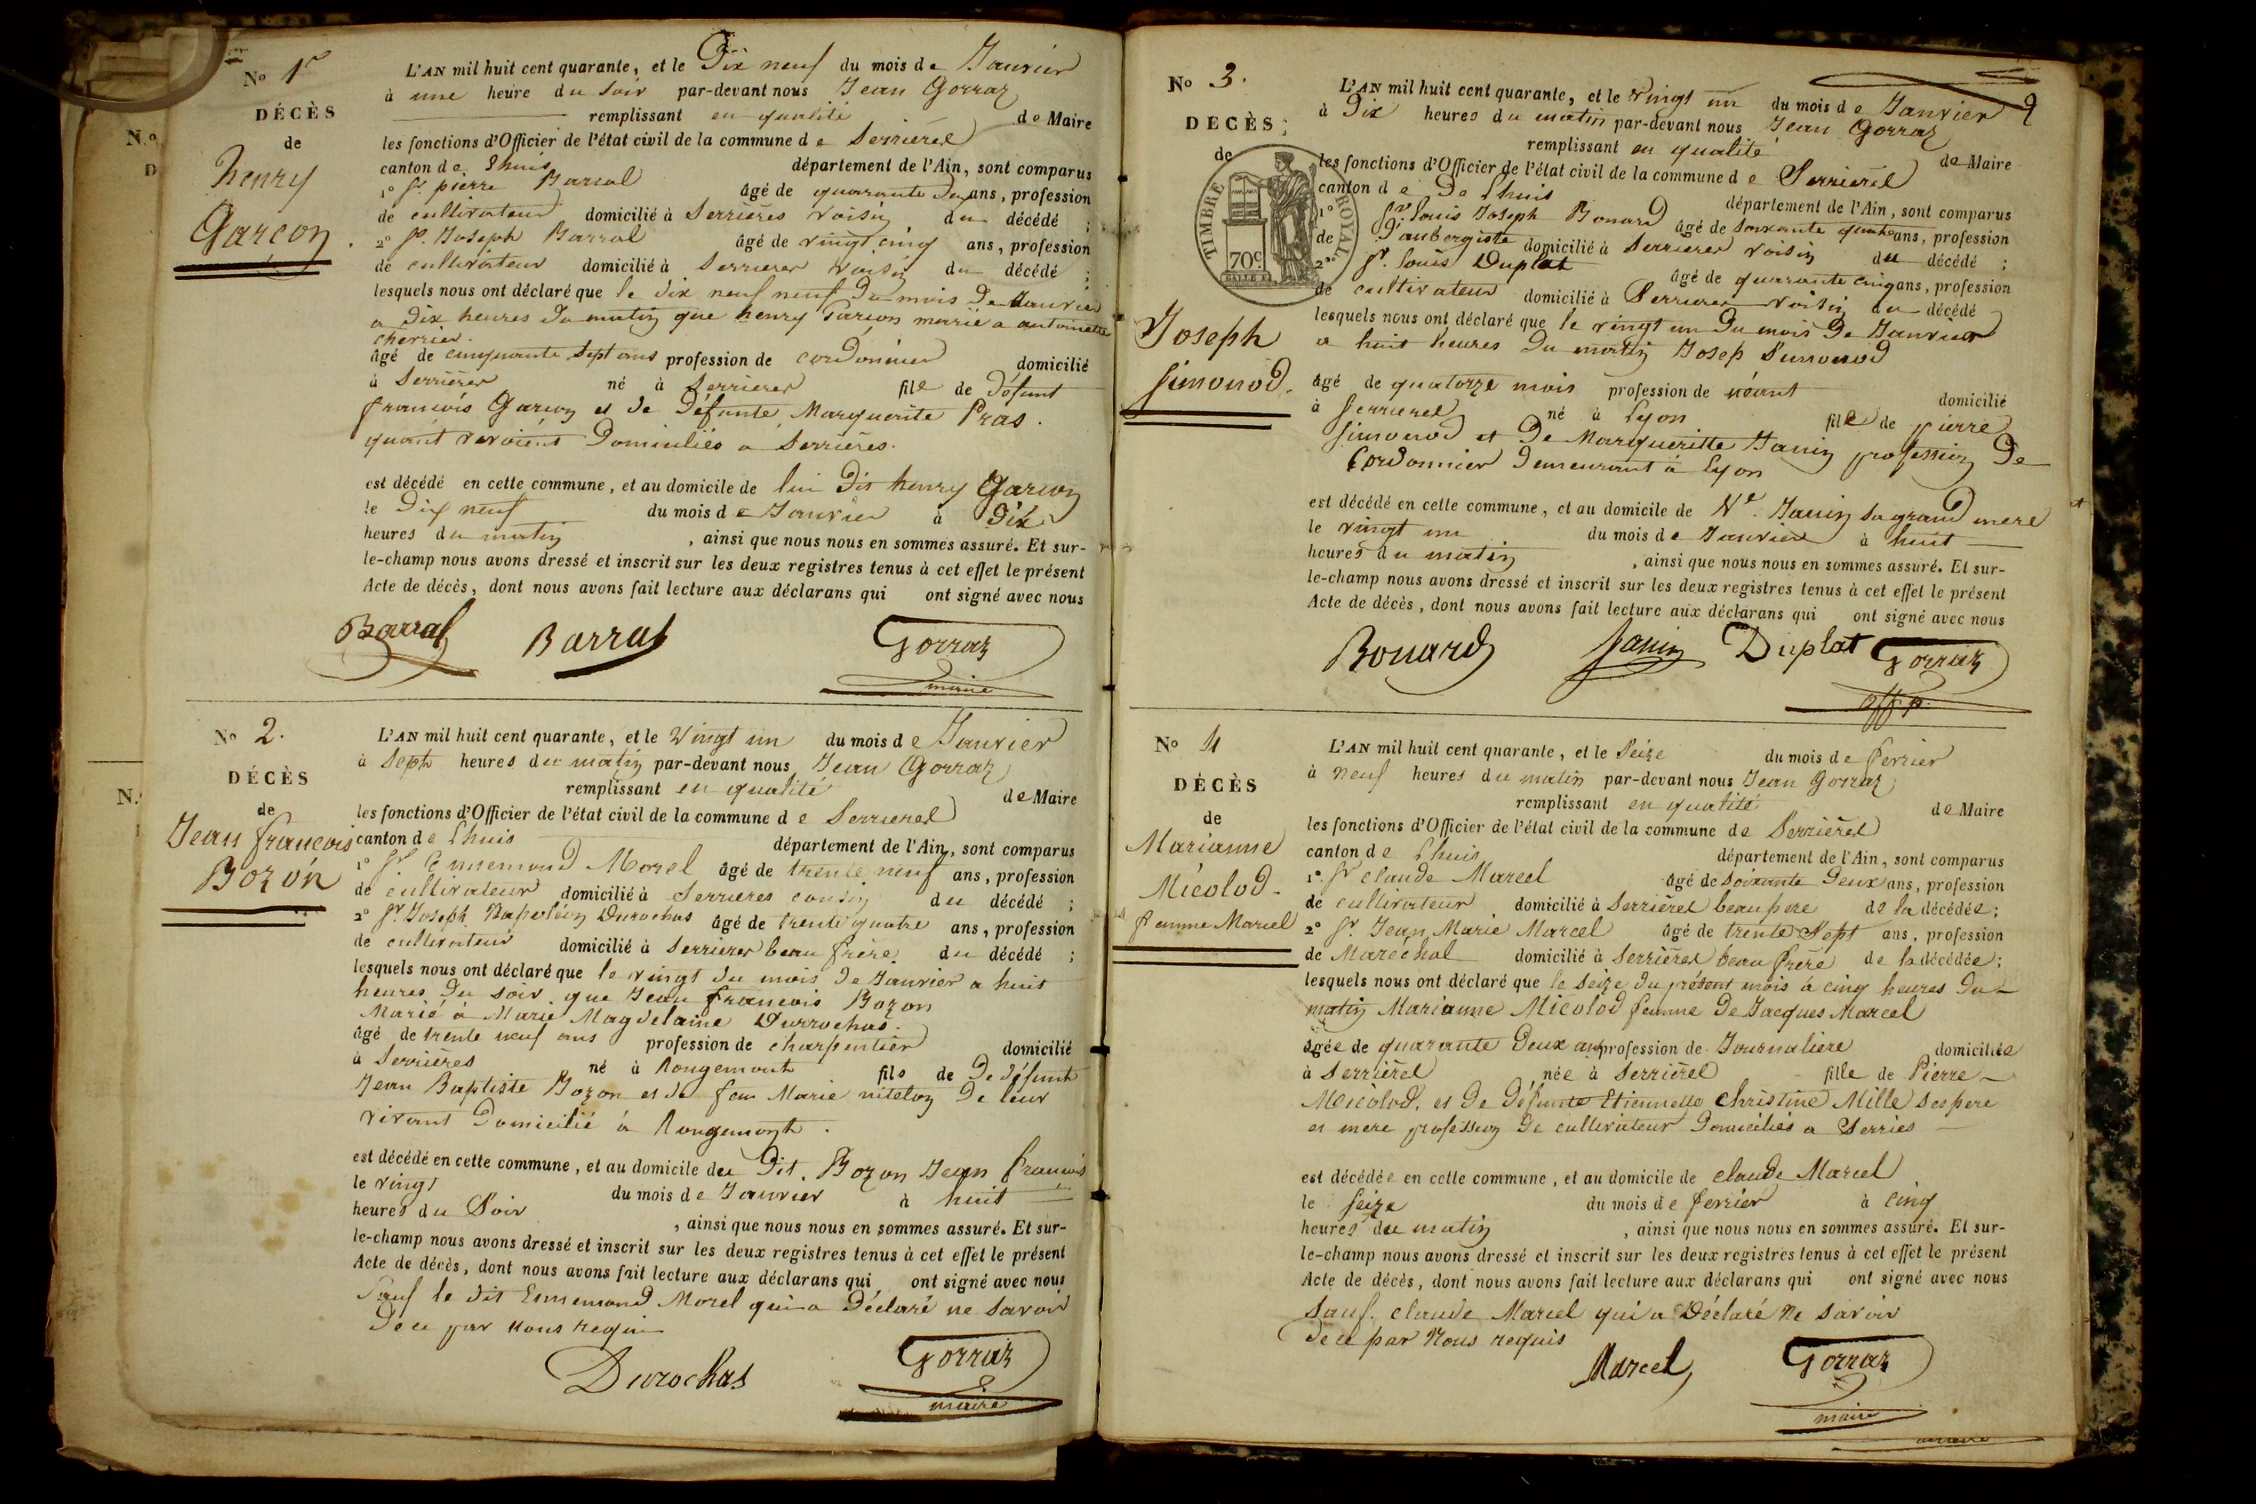 No 1r
DÉCÈS
de
henry
Garcon.
L'AN mil huit cent quarante, et le Dix neuf du mois de Janvier
à une heure du Soir par-devant nous Jean Gorraz
remplissant en qualité de Maire
les fonctions d'Officier de l'état civil de la commune de Serrieres
canton de Lhuis département de l'Ain, sont comparus
1° Sr pierre Barral âgé de quarante deux ans, profession
de cultivateur domicilié à Serrières voisin du décédé ;
2° Sr. Joseph Barral âgé de vingt cinq ans, profession
de cultivateur domicilié à Serrieres voisin du décédé ;
lesquels nous ont déclaré que le dix neuf neuf Du mois De Janvier
a Dix heures du matin que henry Garcon marié a antoinette
cherrier.
âgé de cinquante Sept ans profession de cordonnier domicilié
à Serrières né à Serrieres fils de Défunt
francois Garcon et de Défunte Marguerite Pras.
quant vivoient Domiciliés a Serrières.
est décédé en cette commune, et au domicile de lui Dit henry Garcon
le Dix neuf du mois de Janvier à Dix
heures du matin , ainsi que nous nous en sommes assuré. Et sur-
le-champ nous avons dressé et inscrit sur les deux registres tenus à cet effet le présent
Acte de décès, dont nous avons fait lecture aux déclarans qui ont signé avec nous
Barral Barral Gorraz
maire
No 2.
DÉCÈS
de
Jean francois
Bozon
L'AN mil huit cent quarante, et le Vingt un du mois de Janvier
à Sept heures du matin par-devant nous Jean Gorraz
remplissant en qualité de Maire
les fonctions d'Officier de l'état civil de la commune de Serrieres
canton de Lhuis département de l'Ain, sont comparus
1° Sr Ennemond Morel âgé de trente neuf ans, profession
de cultivateur domicilié à Serrieres cousin du décédé ;
2° Sr. Joseph Napoléon Durochas âgé de trente quatre ans, profession
de cultivateur domicilié à Serrieres beau frère du décédé ;
lesquels nous ont déclaré que le vingt du mois de Janvier a huit
heures Du Soir que Jean francois Bozon
Marié à Marie Magdelaine Durrochas.
âgé de trente neuf ans profession de charpentier domicilié
à Serrières né à Rougemont fils de De Défunt
Jean Baptiste Bozon et de feu Marie De leur
vivant Domicilié à Rougemont.
est décédé en cette commune, et au domicile du Dit. Bozon Jean francois
le vingt du mois de Janvier à huit
heures du Soir , ainsi que nous nous en sommes assuré. Et sur-
le-champ nous avons dressé et inscrit sur les deux registres tenus à cet effet le présent
Acte de décès, dont nous avons fait lecture aux déclarans qui ont signé avec nous
Sauf le dit Ennemond Morel qui a Déclaré ne Savoir
De ce par Nous requis
Durochas Gorraz
maire
No 3.
DECÈS
de
Joseph
Simonod.
TIMBRE ROYAL
70c
L'AN mil huit cent quarante, et le Vingt un du mois de Janvier
à Dix heures du matin par-devant nous Jean Gorraz
remplissant en qualité de Maire
les fonctions d'Officier de l'état civil de la commune de Serrieres
canton de De Lhuis département de l'Ain, sont comparus
1° Sr Louis Joseph Bonard âgé de Soixante quatre ans, profession
de D'aubergiste domicilié à Serrieres voisin du décédé ;
2° Sr. Louis Duplat âgé de quarante cinq ans, profession
de cultivateur domicilié à Serrieres voisin du décédé
lesquels nous ont déclaré que le vingt un Du mois De Janvier
a huit heures Du matin Josep Simonod
âgé de quatorze mois profession de néant domicilié
à Serrieres né à Lyon fils de pierre
Simonod et De Margueritte Janin profession De
Cordonnier Demeurant à Lyon
est décédé en cette commune, et au domicile de Ve. Janin Sa grand mere
le vingt un du mois de Janvier à huit
heures du matin , ainsi que nous nous en sommes assuré. Et sur-
le-champ nous avons dressé et inscrit sur les deux registres tenus à cet effet le présent
Acte de décès, dont nous avons fait lecture aux déclarans qui ont signé avec nous
Bonard Janin Duplat Gorraz
No 4
DÉCÈS
de
Marianne
Micolod.
femme Marcel
L'AN mil huit cent quarante, et le Seize du mois de fevrier
à neuf heures du matin par-devant nous Jean Gorraz
remplissant en qualité de Maire
les fonctions d'Officier de l'état civil de la commune de Serrières
canton de Lhuis département de l'Ain, sont comparus
1° Sr claude Marcel âgé de Soixante Deux ans, profession
de cultivateur domicilié à Serrières beau pere de la décédée ;
2° Sr. Jean Marie Marcel âgé de trente Sept ans, profession
de Maréchal domicilié à Serrières beau frere de la décédée ;
lesquels nous ont déclaré que le Seize du présent mois à cinq heures Du
matin Marianne Micolod femme De Jacques Marcel
âgée de quarante Deux ans profession de Journaliere domiciliée
à Serrières née à Serrières fille de Pierre
Micolod. et De Défunte Etiennette Christine Mille Ses pere
et mere profession De cultivateur Domiciliés a Serries
est décédée en cette commune, et au domicile de claude Marcel
le Seize du mois de fevrier à cinq
heures du matin , ainsi que nous nous en sommes assuré. Et sur-
le-champ nous avons dressé et inscrit sur les deux registres tenus à cet effet le présent
Acte de décès, dont nous avons fait lecture aux déclarans qui ont signé avec nous
Sauf. claude Marcel qui a Déclaré Ne Savoir
De ce par Nous requis
Marcel Gorraz
maire